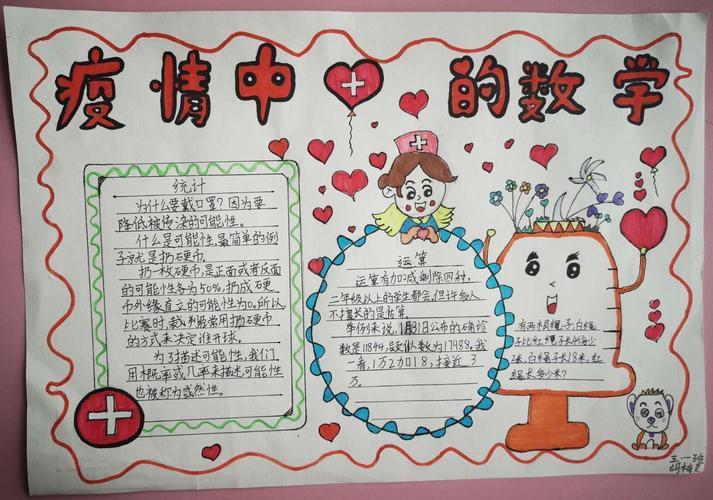 疫情中的数学
统计
为什么要戴口罩？因为要
降低被传染的可能性。
什么是可能性，最简单的例
子就是扔硬币。
扔一枚硬币，是正面或者反面
的可能性各为50%，扔成硬
币外缘直立的可能性为0。所以
比赛时，裁判经常用扔硬币
的方式来决定谁开球。
为了描述可能性，我们
用概率或几率来描述，可能性
也被称为或然性。
运算
运算有加减乘除四种，
二年级以上的学生都会，但许多人
不擅长的是估算。
举例来说，1月31日公布的确诊
数是11844，疑似数为17988。我
一看，1万2加18，接近3
万。
有两根绳子，白绳
子比红绳子长
米，白绳子长18米，红
绳长多少米？
三、一班